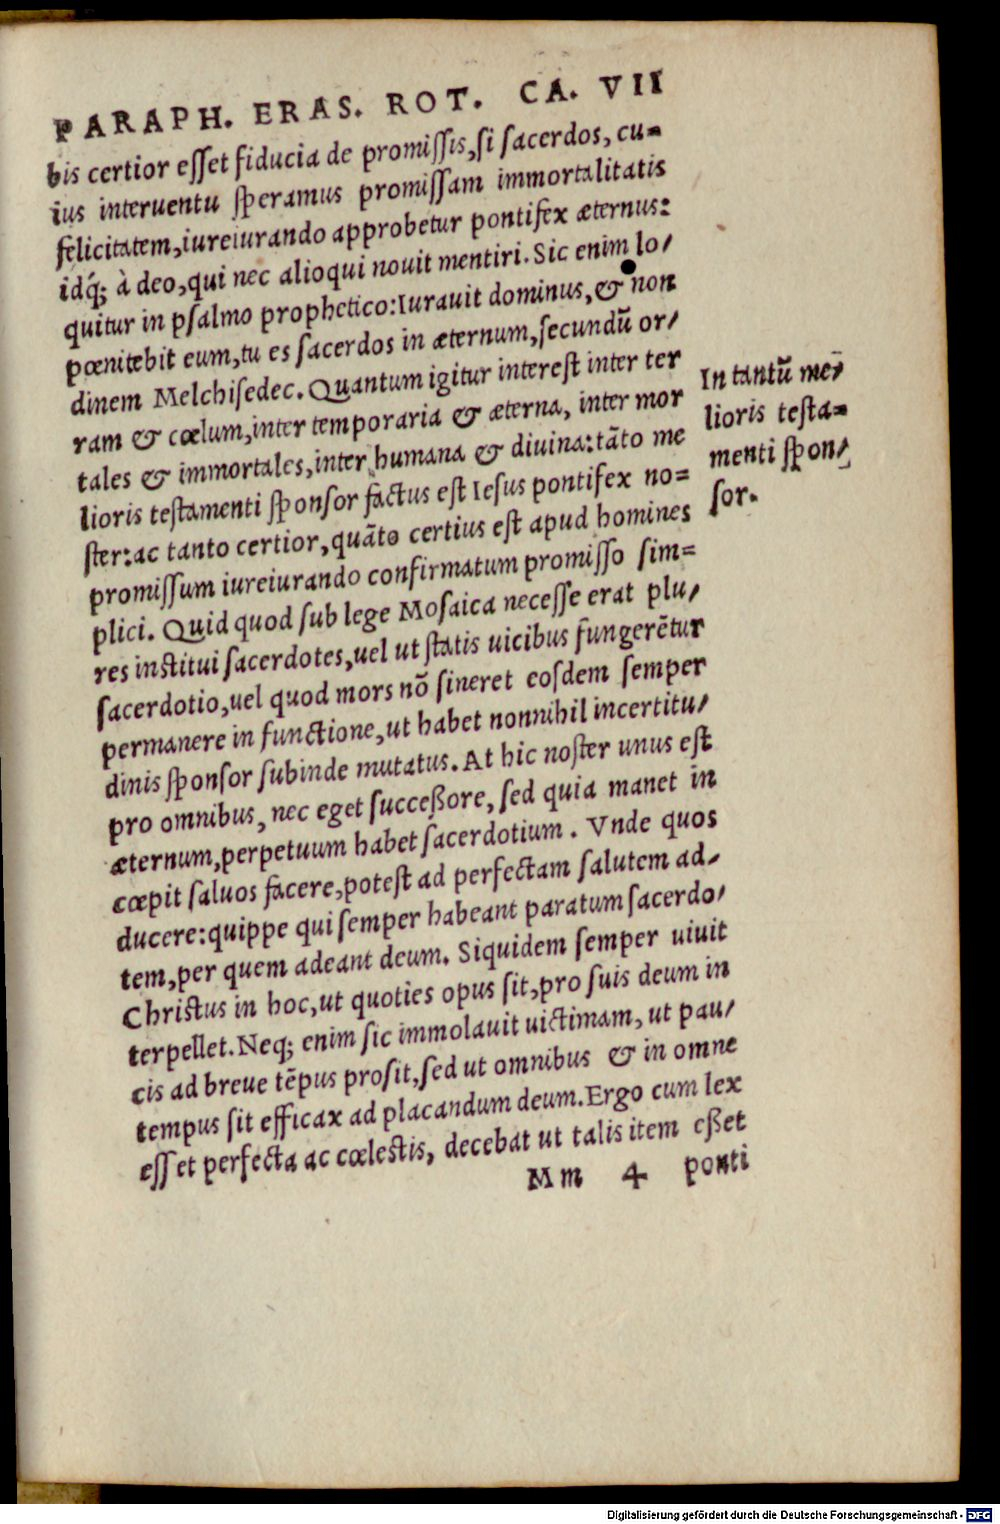 PARAPH. ERAS. ROT. CA. VII
bis certior eſſet fiducia de promiſſis,ſi ſacerdos, cu=
ius interuentu ſperamus promiſſam immortalitatis
felicitatem,iureiurando approbetur pontifex æternus:
idq́; à deo,qui nec alioqui nouit mentiri. Sic enim lo/
quitur in pſalmo prophetico:Iurauit dominus,& non
pœnitebit eum,tu es ſacerdos in æternum,ſecundũ or/
dinem Melchiſedec. Quantum igitur intereſt inter ter
ram & cœlum,inter temporaria & æterna, inter mor
tales & immortales,inter humana & diuina:tãto me
lioris teſtamenti ſponſor factus eſt Ieſus pontifex no=
ſter:ac tanto certior,quãto certius eſt apud homines
promiſſum iureiurando confirmatum promiſſo ſim=
plici. Quid quod ſub lege Moſaica neceſſe erat plu/
res inſtitui ſacerdotes,uel ut ſtatis uicibus fungerẽtur
ſacerdotio,uel quod mors nõ ſineret eoſdem ſemper
permanere in functione,ut habet nonnihil incertitu/
dinis ſponſor ſubinde mutatus. At hic noſter unus eſt
pro omnibus, nec eget ſucceßore, ſed quia manet in
æternum,perpetuum habet ſacerdotium. Vnde quos
cœpit ſaluos facere,poteſt ad perfectam ſalutem ad/
ducere:quippe qui ſemper habeant paratum ſacerdo/
tem,per quem adeant deum. Siquidem ſemper uiuit
Chriſtus in hoc,ut quoties opus ſit,pro ſuis deum in
terpellet. Neq; enim ſic immolauit uictimam, ut pau/
cis ad breue tẽpus proſit,ſed ut omnibus & in omne
tempus ſit efficax ad placandum deum. Ergo cum lex
eſſet perfecta ac cœleſtis, decebat ut talis item eßet
Mm 4 ponti
In tantũ me/
lioris teſta=
menti ſpon/
ſor.
Digitalisierung gefördert durch die Deutsche Forschungsgemeinschaft - DFG